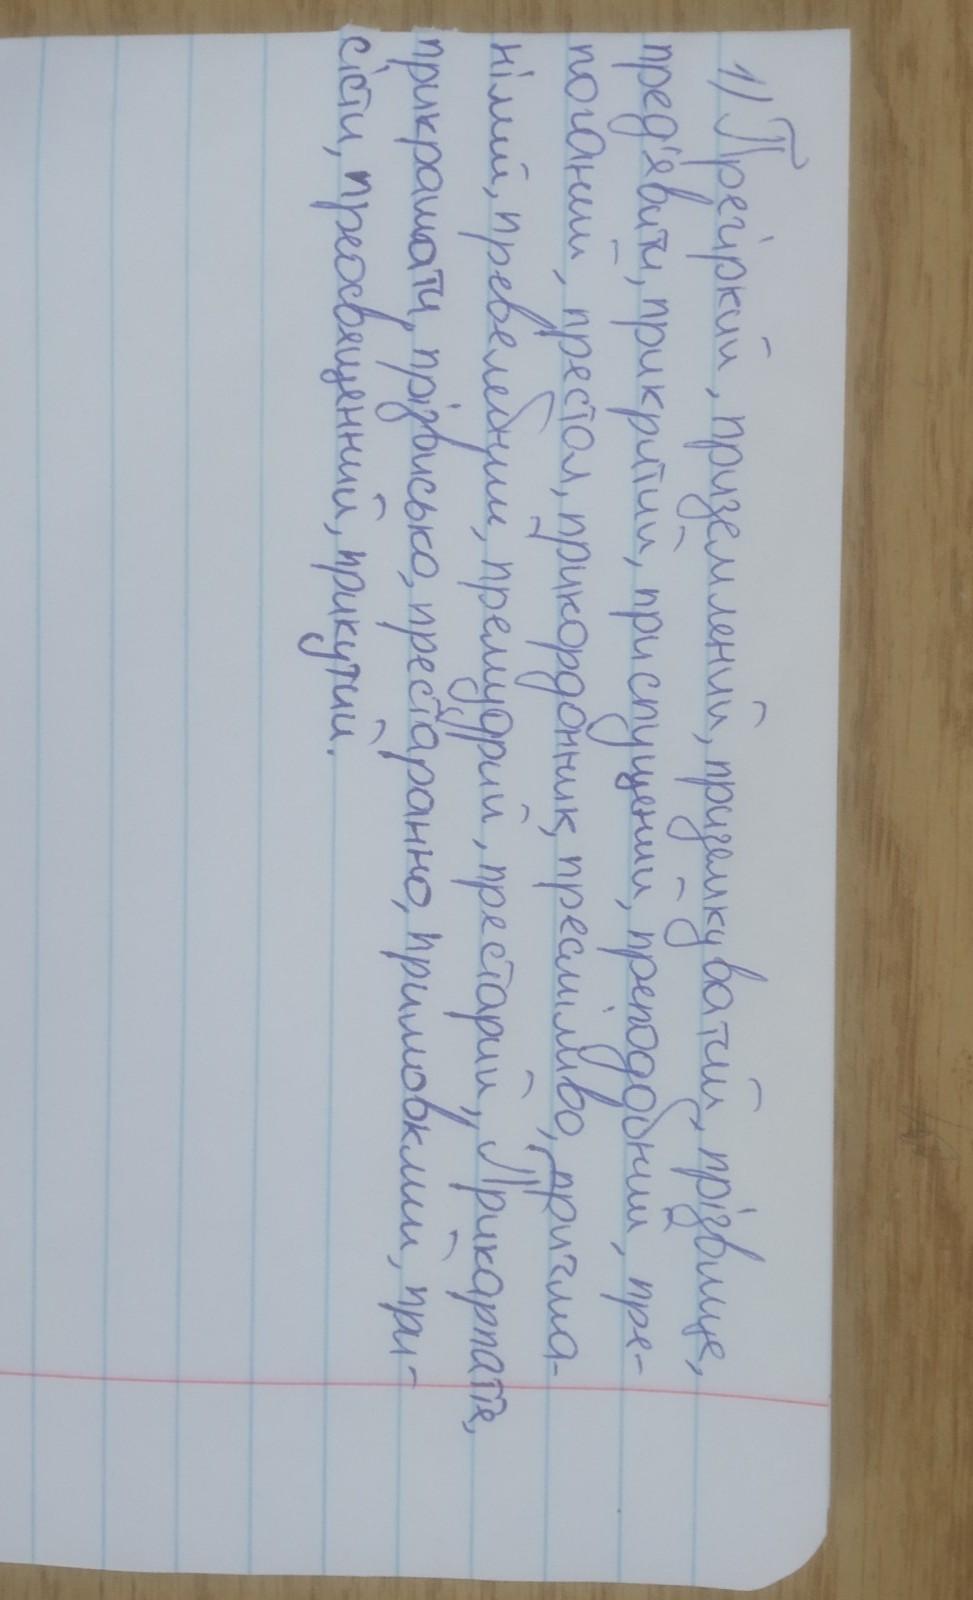 1) Прегіркий, приземлений, приземкуватий, прізвище,
пред'явити, прикритий, приспущений, преподобний, пре-
поганий, престол, прикордонник, пресмілбво, причма-
нілий, превелебний, премудрий, престарий, Прикарпаття,
прикрашати, прізвисько, престаранно, примовклий, при-
сісти, преосвященний, прикутий.